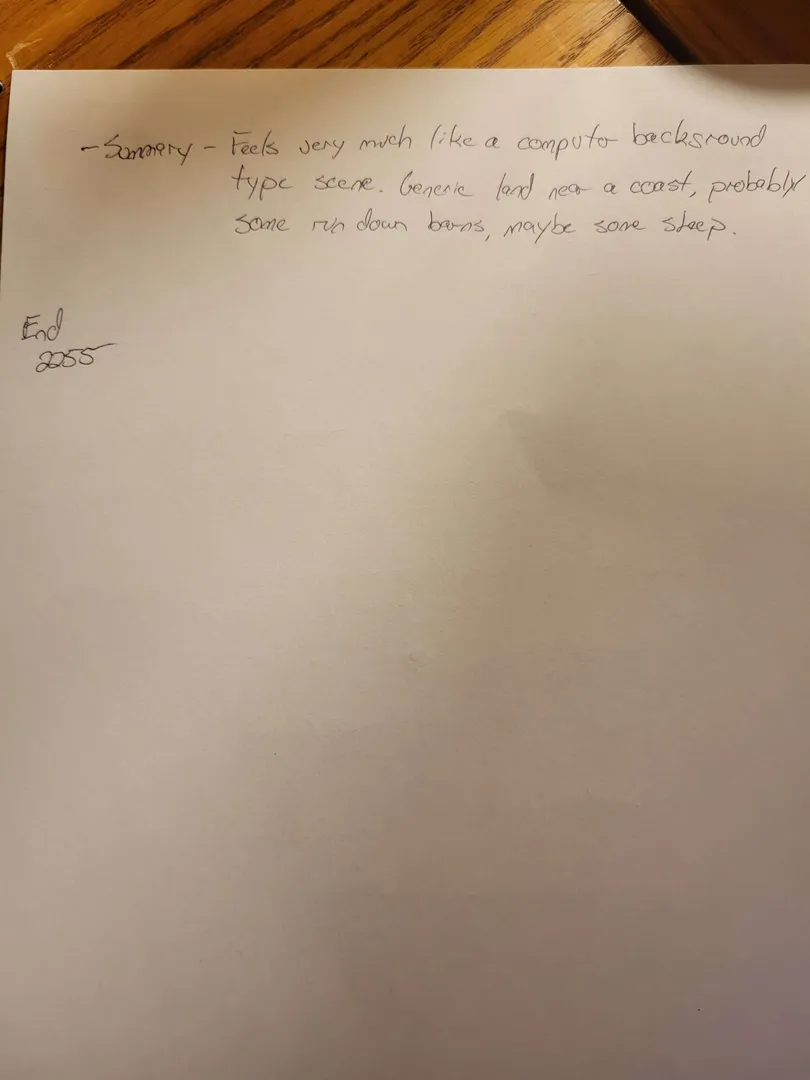 - Summary - Feels very much like a computer background
type scene. Generic land near a coast, probably
some run down barns, maybe some sheep.
End
2255